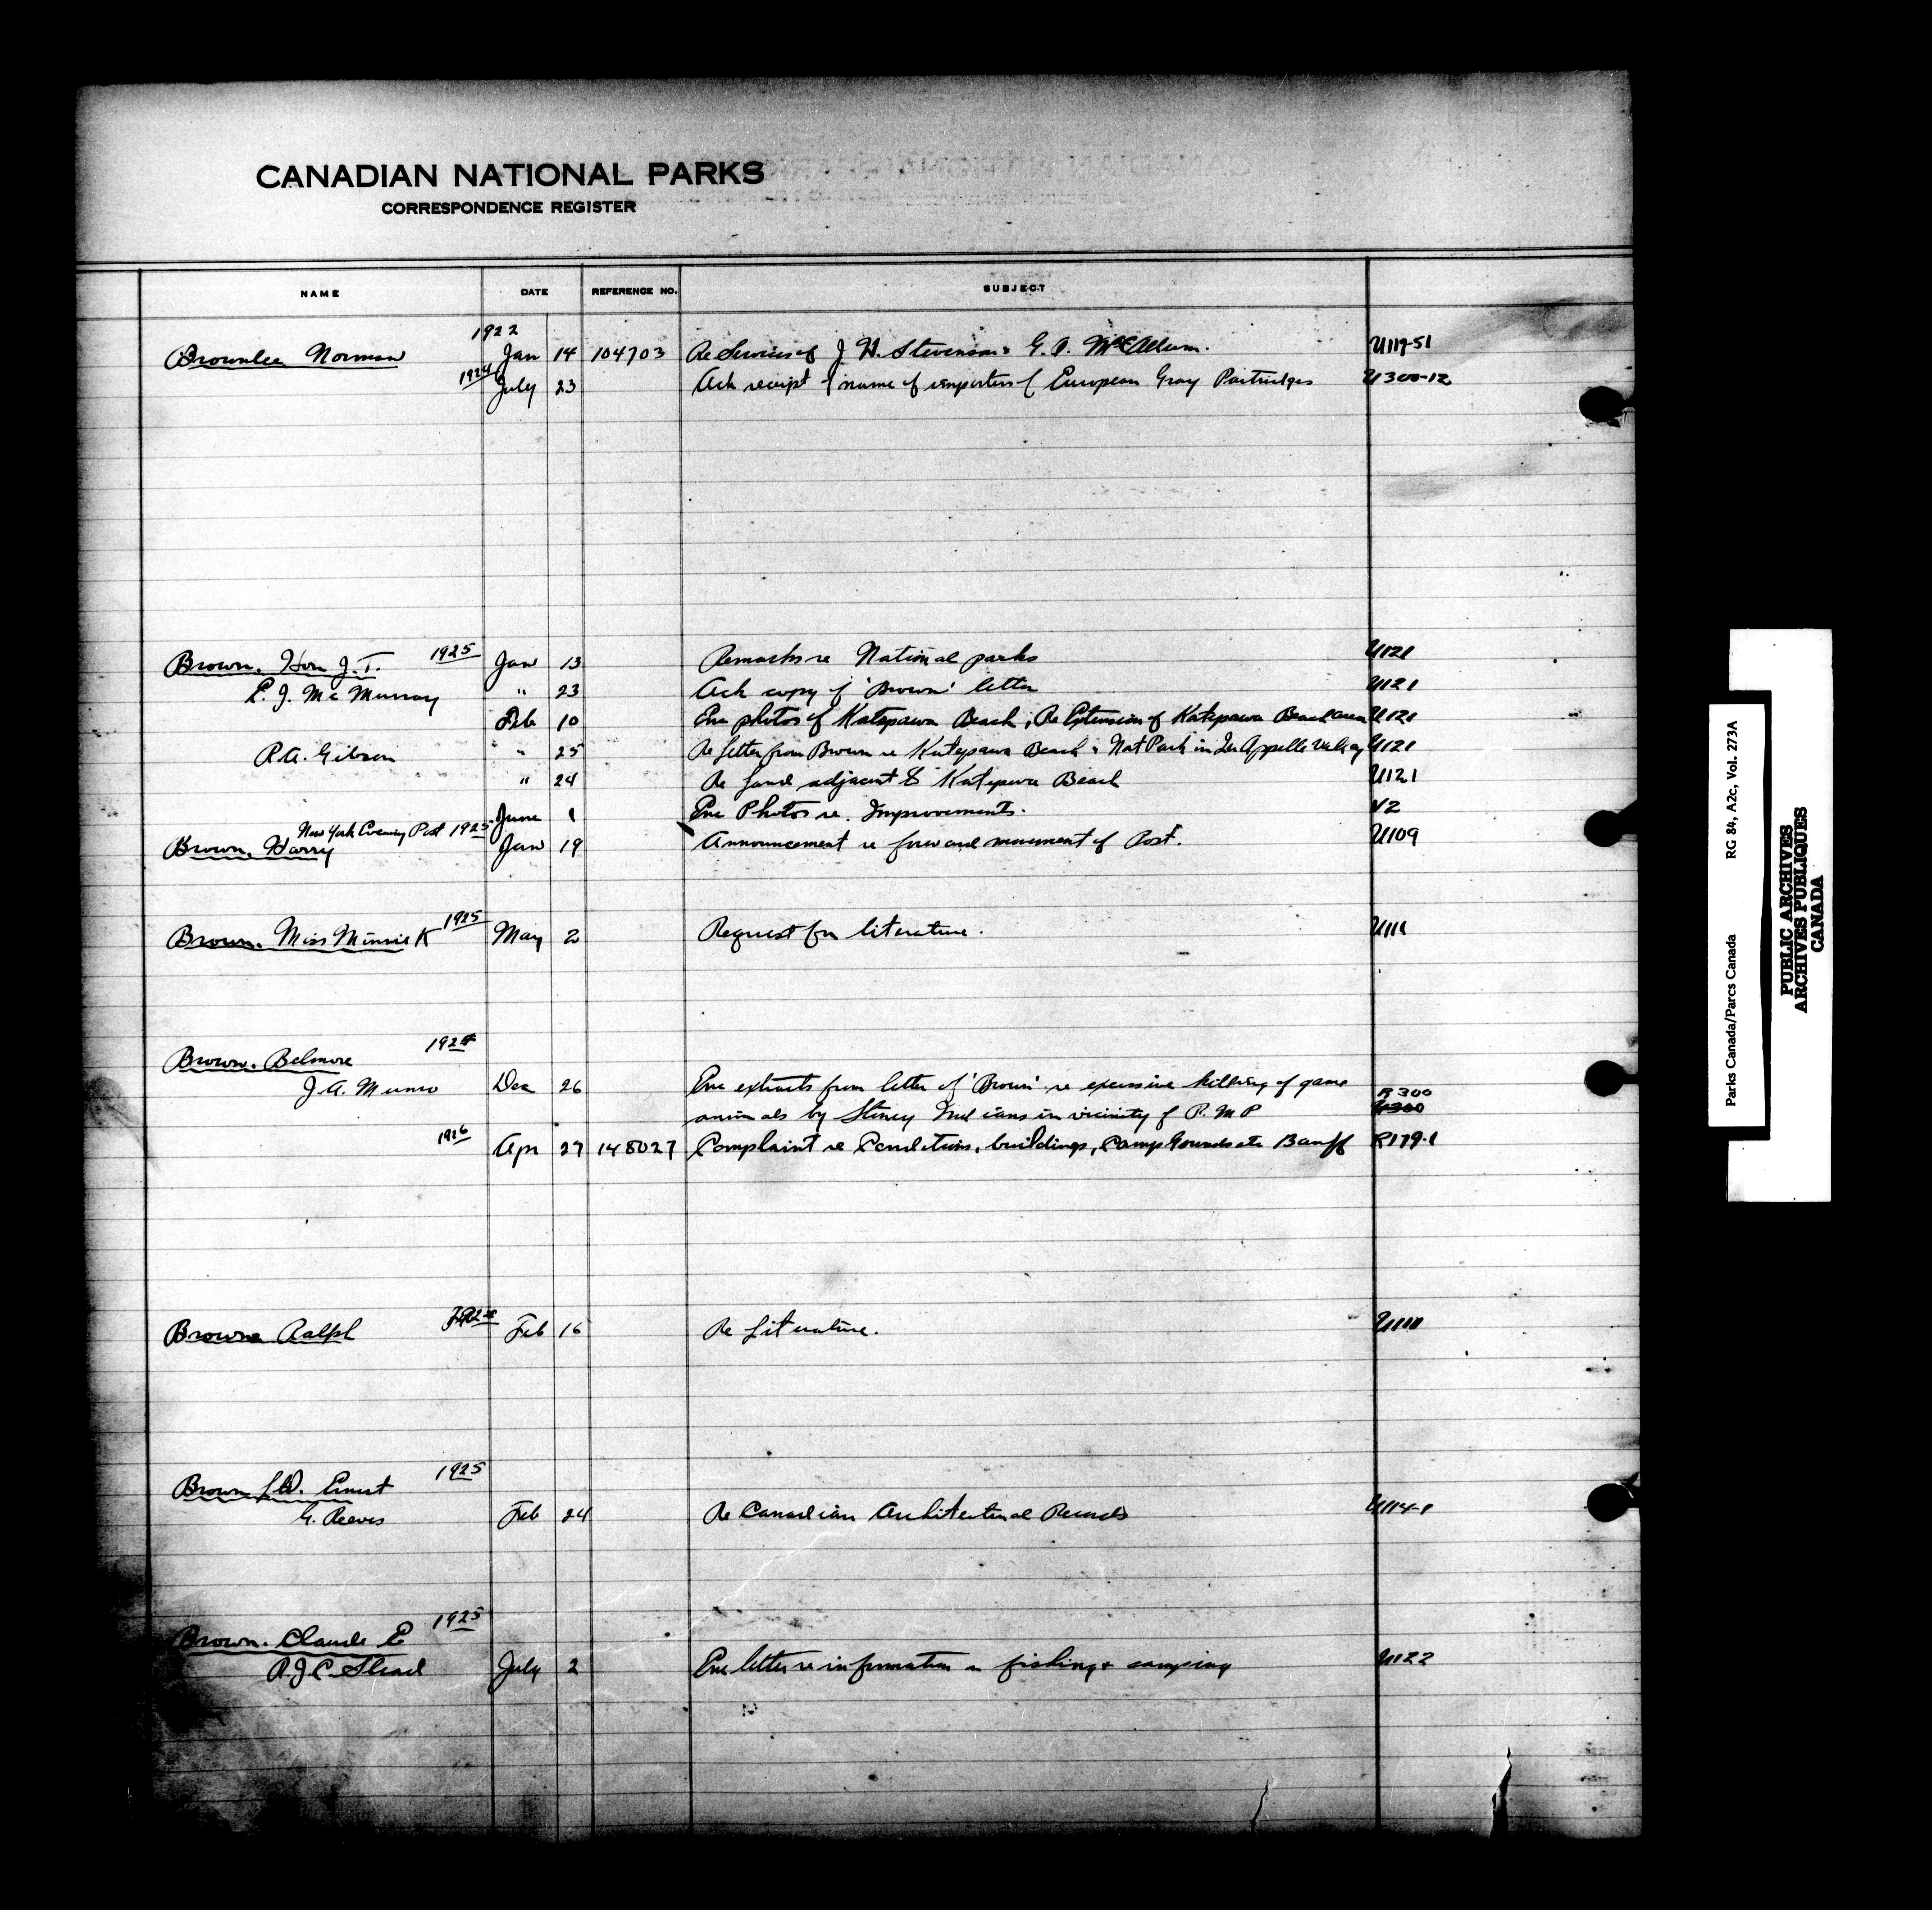 CANADIAN NATIONAL PARKS
CORRESPONDENCE REGISTER
NAME DATE REFERENCE NO. SUBJECT
1922
Brownlee Norman Jan 14 104703 Re Services of J. H. Stevenson & G. A. McCallum. U117-51
1924 July 23 Ack receipt of name of importers of European Gray Partridges U300-12
Brown. Hon J. T. 1925 Jan 13 Remarks re National parks U121
E. J. McMurray " 23 Ack copy of 'Brown' letter U121
Feb 10 Enc photos of Katepawa Beach, Re Extension of Katepawa Beach area U121
R.A. Gibson " 25 Re letter from Brown re Katepawa Beach & Nat Park in Qu Appelle Valley U121
" 24 Re land adjacent to Katepwa Beach U121
June 1 Enc Photos re. Improvements. V2
New York Evening Post 1925
Brown. Harry Jan 19 Announcement re forward movement of Post. U109
Brown. Miss Minnie K 1925 May 2 Request for literature. U111
Brown. Belmore 192
J.A. Munro Dec 26 Enc extracts from letter of 'Brown' re excessive killing of game R300
animals by Stoney Indians in vicinity of R.M.P U300
1926 Apr 27 148027 Complaint re Conditions, buildings, Camp Grounds etc Banff R179-1
Browne Ralph Feb 16 Re Literature. U111
Brown Ernest 1925
G. Reeves Feb 24 Re Canadian Architectural Records U114-1
Brown. Claude E 1925
R.J.C. Stead July 2 Enc letter re information on fishing & camping U122
Parks Canada/Parcs Canada RG 84, A2c, Vol. 273A
PUBLIC ARCHIVES
ARCHIVES PUBLIQUES
CANADA